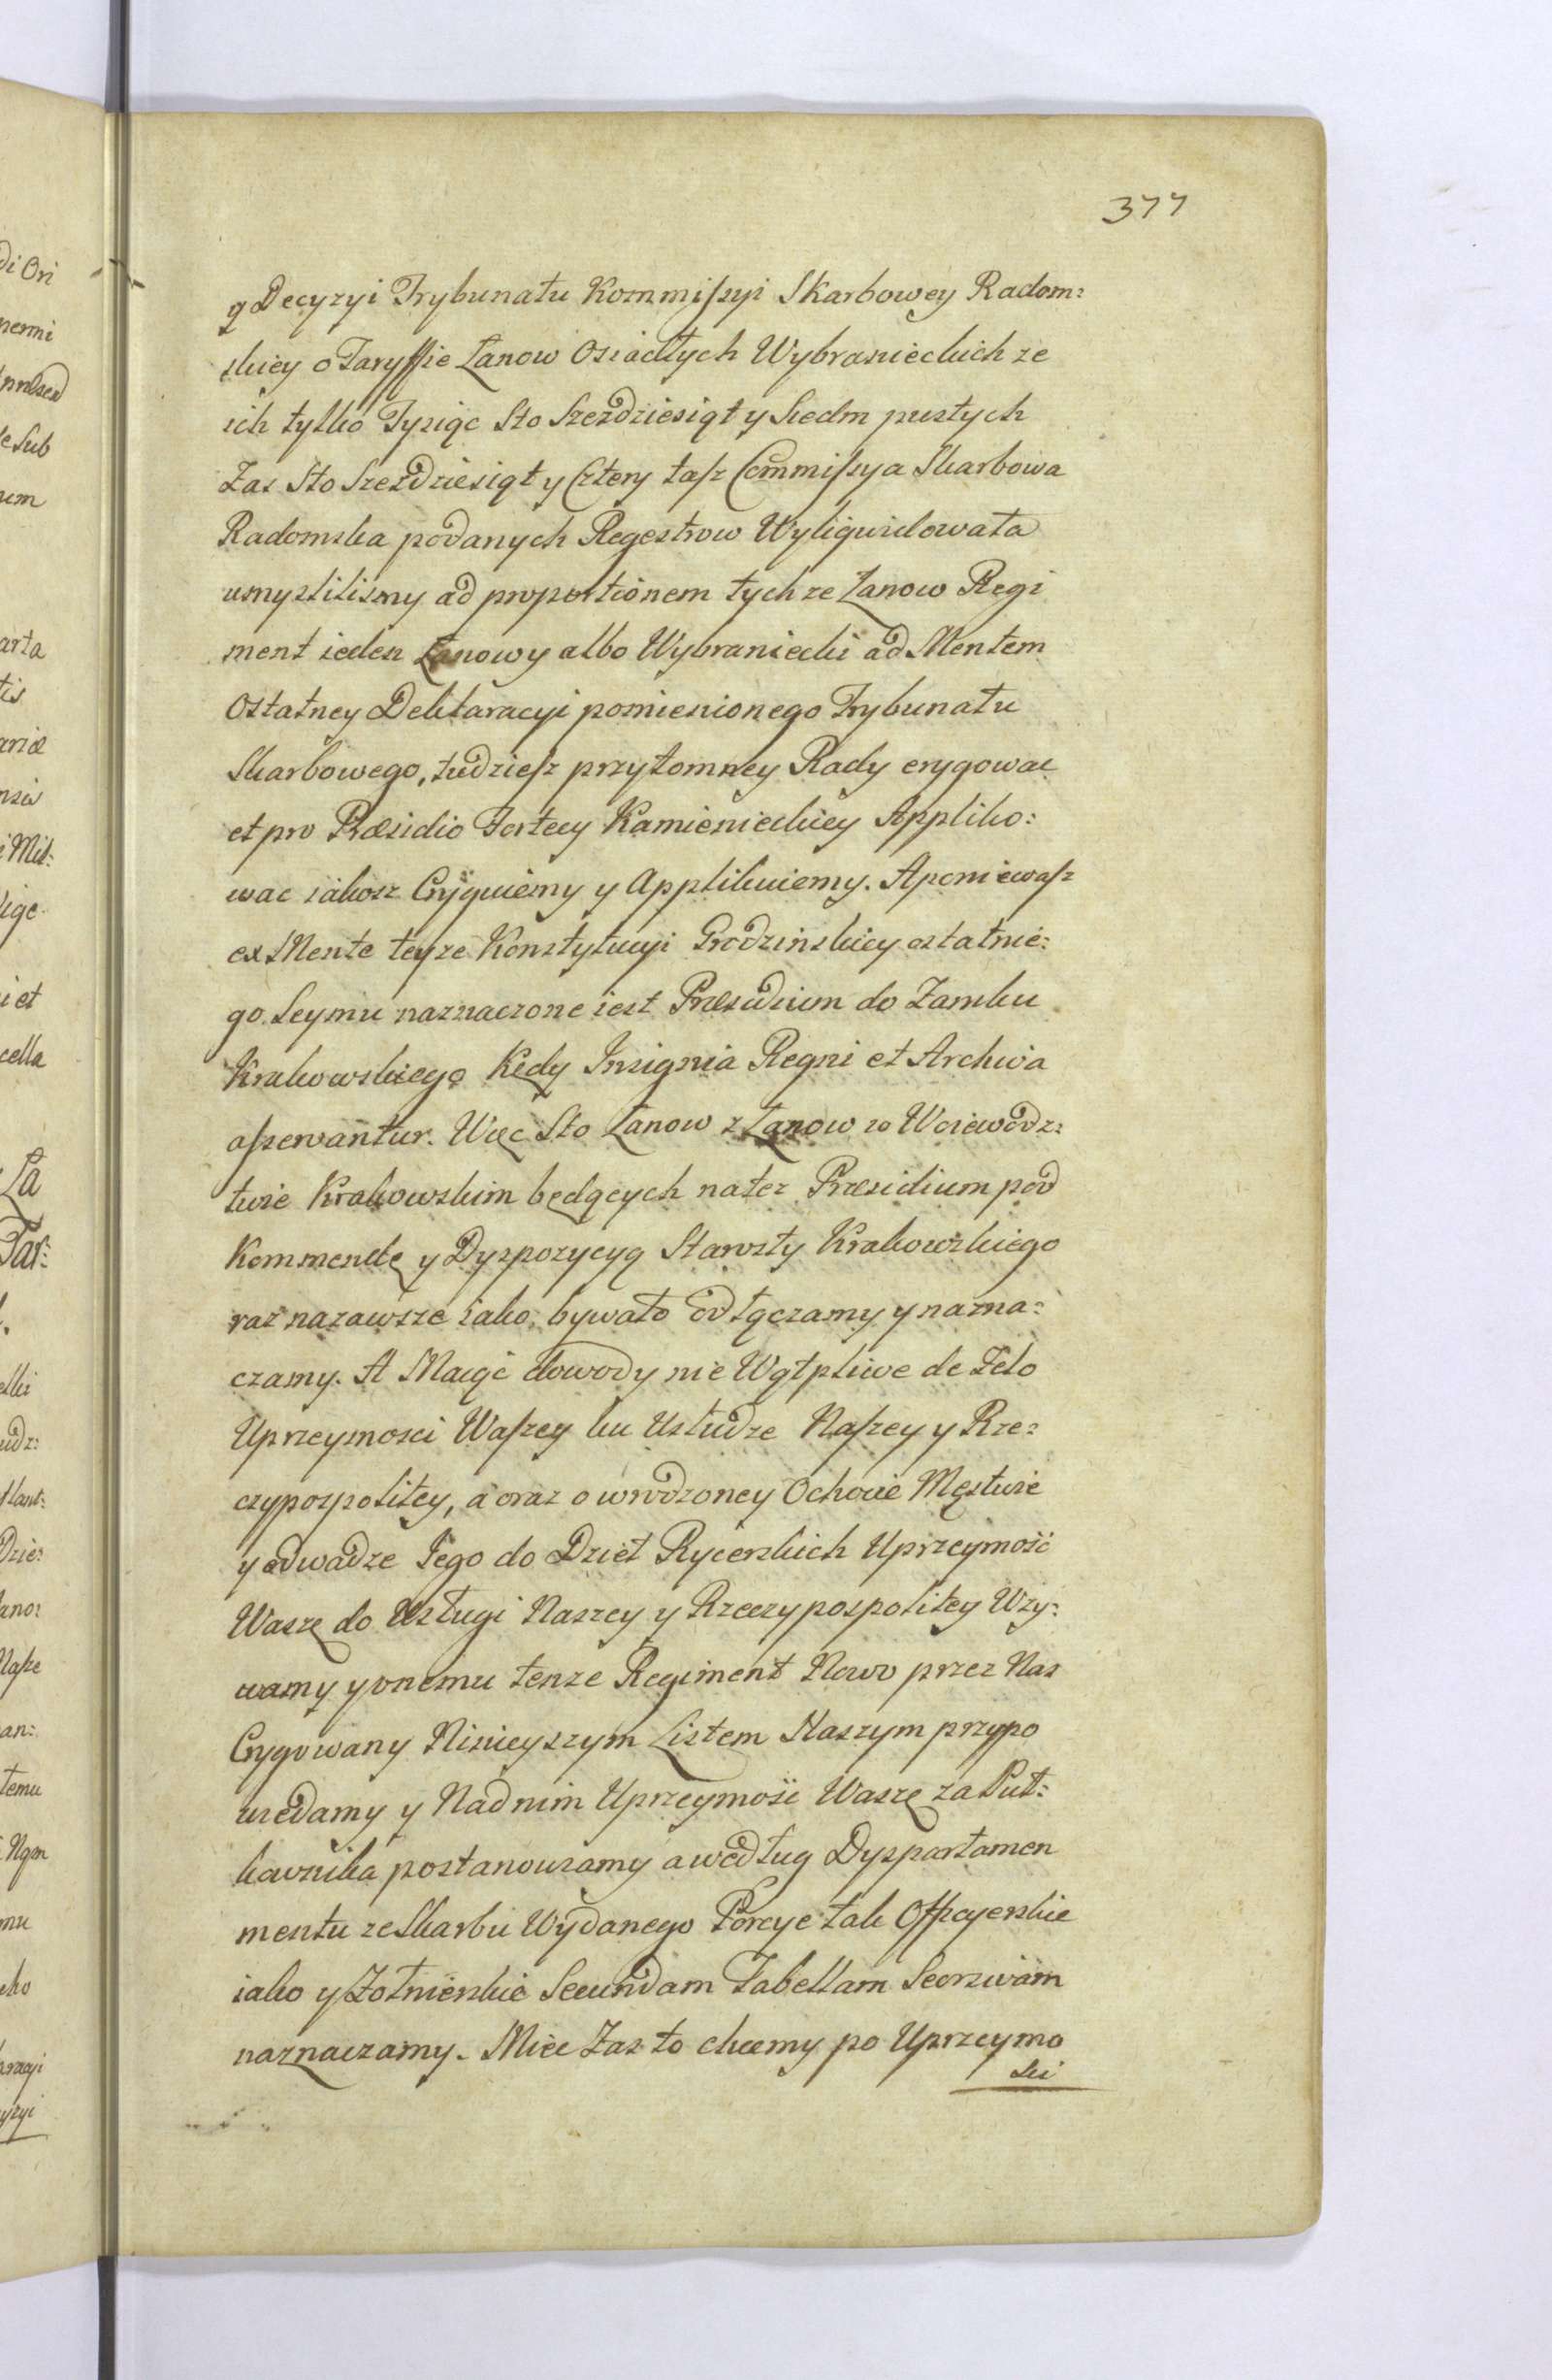 377
y Decyzyi Trybunatu Kommissyi Skarbowey Radom:
skiey o Taryffie Łanow Osiadłych Wybranieckich ze
ich tylko Tysiąc Sto Szeździesiąt y Siedm pustych
Zas Sto Szeździesiąt y Cztery tasz Commissya Skarbowa
Radomska podanych Regestrow Wyliquidowała
umyslilismy ad proportionem tych ze Łanow Regi
ment ieden Łanowy albo Wybraniecki ad Mentem
Ostatney Deklaracyi pomienionego Trybunatu
Skarbowego, tudziesz przytomney Rady erygowac
et pro Præsidio Fortecy Kamienieckiey Appliko:
wac iakosz Eryguiemy y Applikuiemy. A poniewasz
ex Mente teyze Konstytucyi Grodzinskiey ostatnie:
go Seymu naznaczone iest Præsidium do Zamku
Krakowskiego Kędy Insignia Regni et Archivia
asservantur. Więc Sto Łanow z Łanow w Woiewodz:
twie Krakowskim będących na tez Præsidium pod
Kommendę y Dyspozycyą Starosty Krakowskiego
raz nazawsze iako bywało odłączamy y nazna:
czamy. A Maiąc dowody nie Wątpliwe de Zelo
Uprzeymosci Waszey ku Usłudze Naszey y Rze:
czypospolitey, a oraz o wrodzoney Ochocie Męstwie
y odwadze Jego do Dzieł Rycerskich Uprzeymość
Waszę do Usługi Naszey y Rzeczypospolitey Wzy:
wamy y onemu tenze Regiment Nowo przez Nas
Erygowany Ninieyszym Listem Naszym przypo
wiedamy y Nad nim Uprzeymość Waszę za Puł:
kownika postanowiamy a według Dyspartamen
mentu ze Skarbu Wydanego Porcye tak Offycyerskie
iako y Zołnierskie Secundam Tabellam Seorsivam
naznaczamy. Miec Zas to chcemy po Uprzeymo
sci